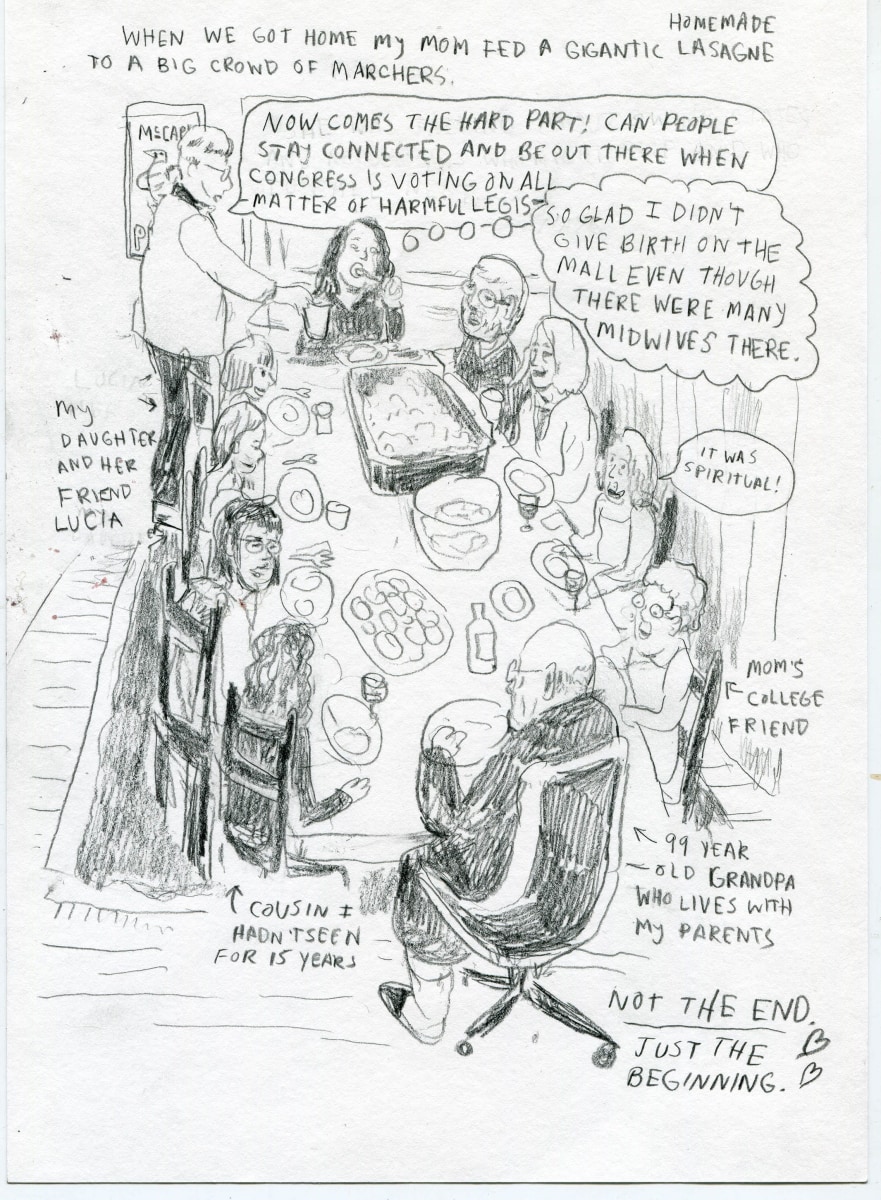 HOMEMADE
WHEN WE GOT HOME MY MOM FED A GIGANTIC LASAGNE
TO A BIG CROWD OF MARCHERS.
McCAR
P
NOW COMES THE HARD PART! CAN PEOPLE
STAY CONNECTED AND BE OUT THERE WHEN
CONGRESS IS VOTING ON ALL
MATTER OF HARMFUL LEGIS-
SO GLAD I DIDN'T
GIVE BIRTH ON THE
MALL EVEN THOUGH
THERE WERE MANY
MIDWIVES THERE.
MY
DAUGHTER
AND HER
FRIEND
LUCIA
IT WAS
SPIRITUAL!
MOM'S
COLLEGE
FRIEND
99 YEAR
-OLD GRANDPA
WHO LIVES WITH
MY PARENTS
COUSIN I
HADN'T SEEN
FOR 15 YEARS
NOT THE END.
JUST THE
BEGINNING.